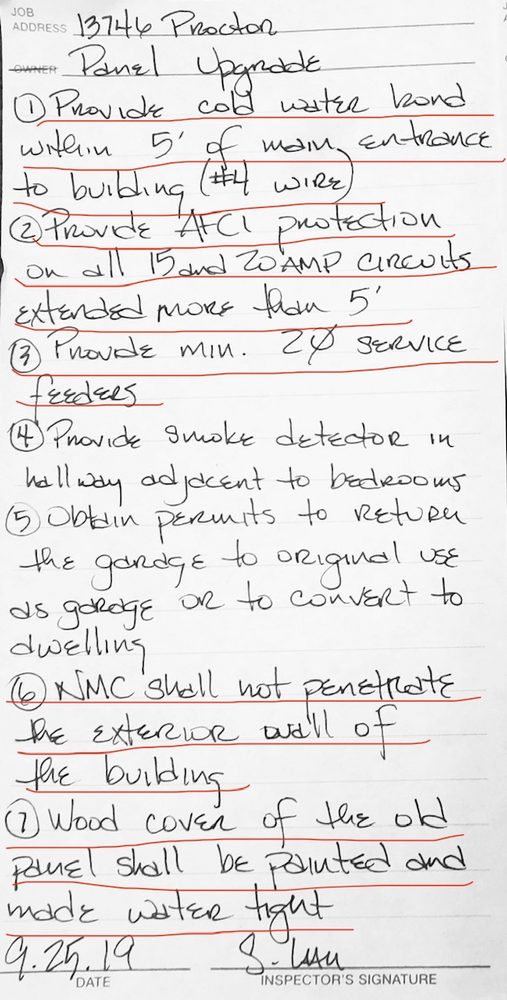 JOB
ADDRESS 13746 Proctor
OWNER Panel Upgrade
① Provide cold water bond
within 5' of main entrance
to building (#4 wire)
② Provide AFCI protection
on all 15 and 20 AMP circuits
extended more than 5'
③ Provide min. 2Ø service
feeders
④ Provide smoke detector in
hallway adjacent to bedrooms
⑤ Obtain permits to return
the garage to original use
as garage or to convert to
dwelling
⑥ NMC shall not penetrate
the exterior wall of
the building
⑦ Wood cover of the old
panel shall be painted and
made water tight
9.25.19 S.
DATE INSPECTOR'S SIGNATURE